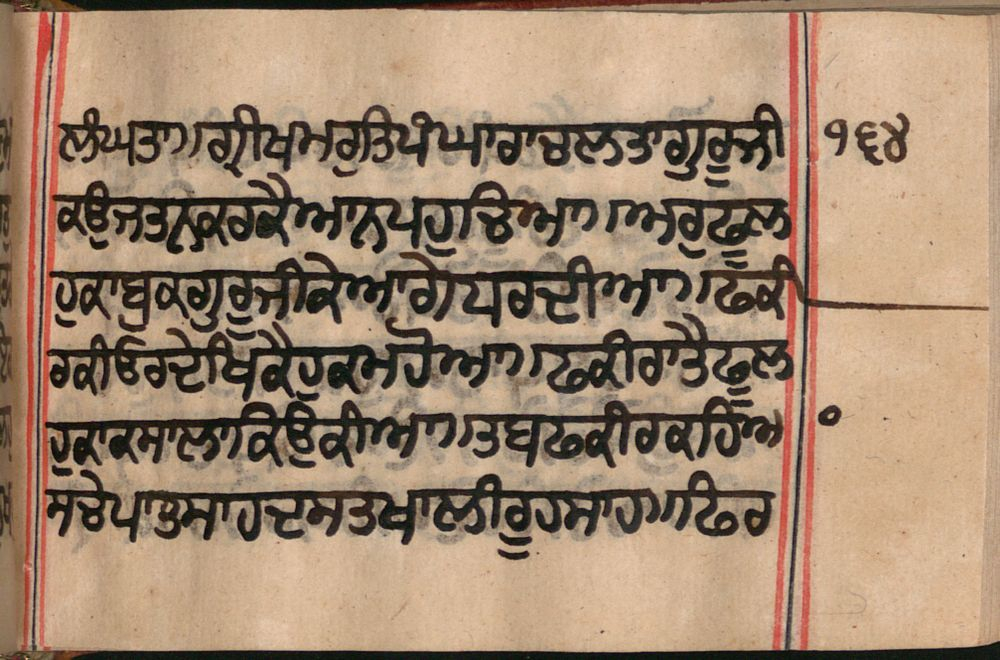 ਲੰਘਤਾ।।ਗ੍ਰੀਖਮਰੁਤਿਪੰਘਾਰਾਚਲਤਾਗੁਰੂਜੀ ੧੬੪
ਕਉਜਤਨਕਰਕੈਆਨਪਹੁਚਿਆ।।ਅਰੁਫੂਲ
ਹੁਕਾਬੁਕਗੁਰੂਜੀਕੇਆਗੇਪਰਦੀਆ।।ਫਕੀ
ਰਕੀਓਰਦੇਖਿਕੈਹੁਕਮਹੋਆ।।ਫਕੀਰਾਤੈਫੂਲ
ਹੁਕਾਕਸਾਲਾਕਿਉਕੀਆ।।ਤਬਫਕੀਰਕਹਿਆ ੦
ਸਚੇਪਾਤੁਸਾਹਦਸਤਖਾਲੀਰੂਹਸਾਹ।।ਫਿਰ